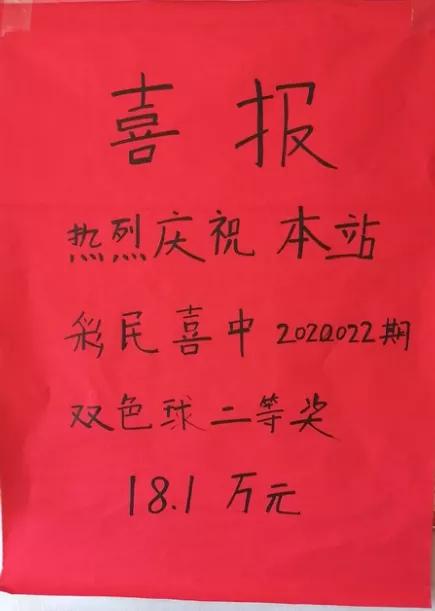 喜报
热烈庆祝本站
彩民喜中2020022期
双色球二等奖
18.1万元